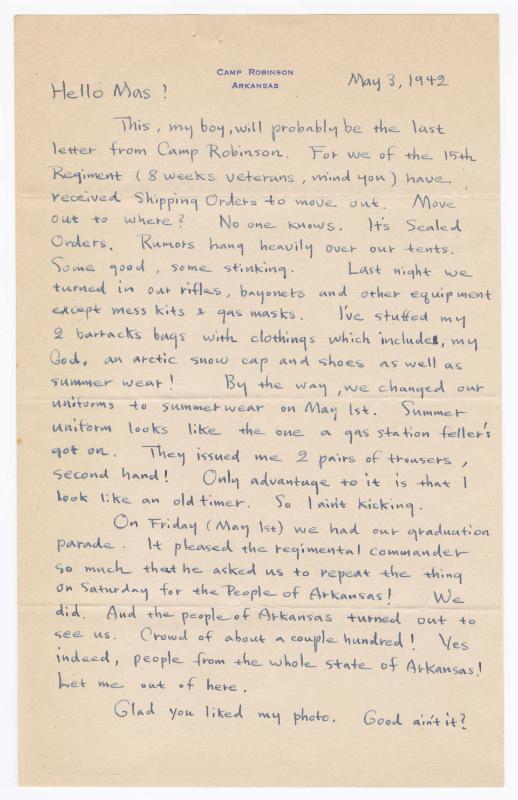 CAMP ROBINSON
ARKANSAS
May 3, 1942
Hello Mas!
This, my boy, will probably be the last
letter from Camp Robinson. For we of the 15th
Regiment (8 weeks veterans, mind you) have
received Shipping Orders to move out. Move
out to where? No one knows. It's Sealed
Orders. Rumors hang heavily over our tents.
Some good, some stinking. Last night we
turned in our rifles, bayonets and other equipment
except mess kits & gas masks. I've stuffed my
2 barracks bags with clothings which includes, my
God, an arctic snow cap and shoes as well as
summer wear! By the way, we changed our
uniforms to summer wear on May 1st. Summer
uniform looks like the one a gas station feller's
got on. They issued me 2 pairs of trousers,
second hand! Only advantage to it is that I
look like an old timer. So I ain't kicking.
On Friday (May 1st) we had our graduation
parade. It pleased the regimental commander
so much that he asked us to repeat the thing
on Saturday for the People of Arkansas! We
did. And the people of Arkansas turned out to
see us. Crowd of about a couple hundred! Yes
indeed, people from the whole state of Arkansas!
Let me out of here.
Glad you liked my photo. Good ain't it?